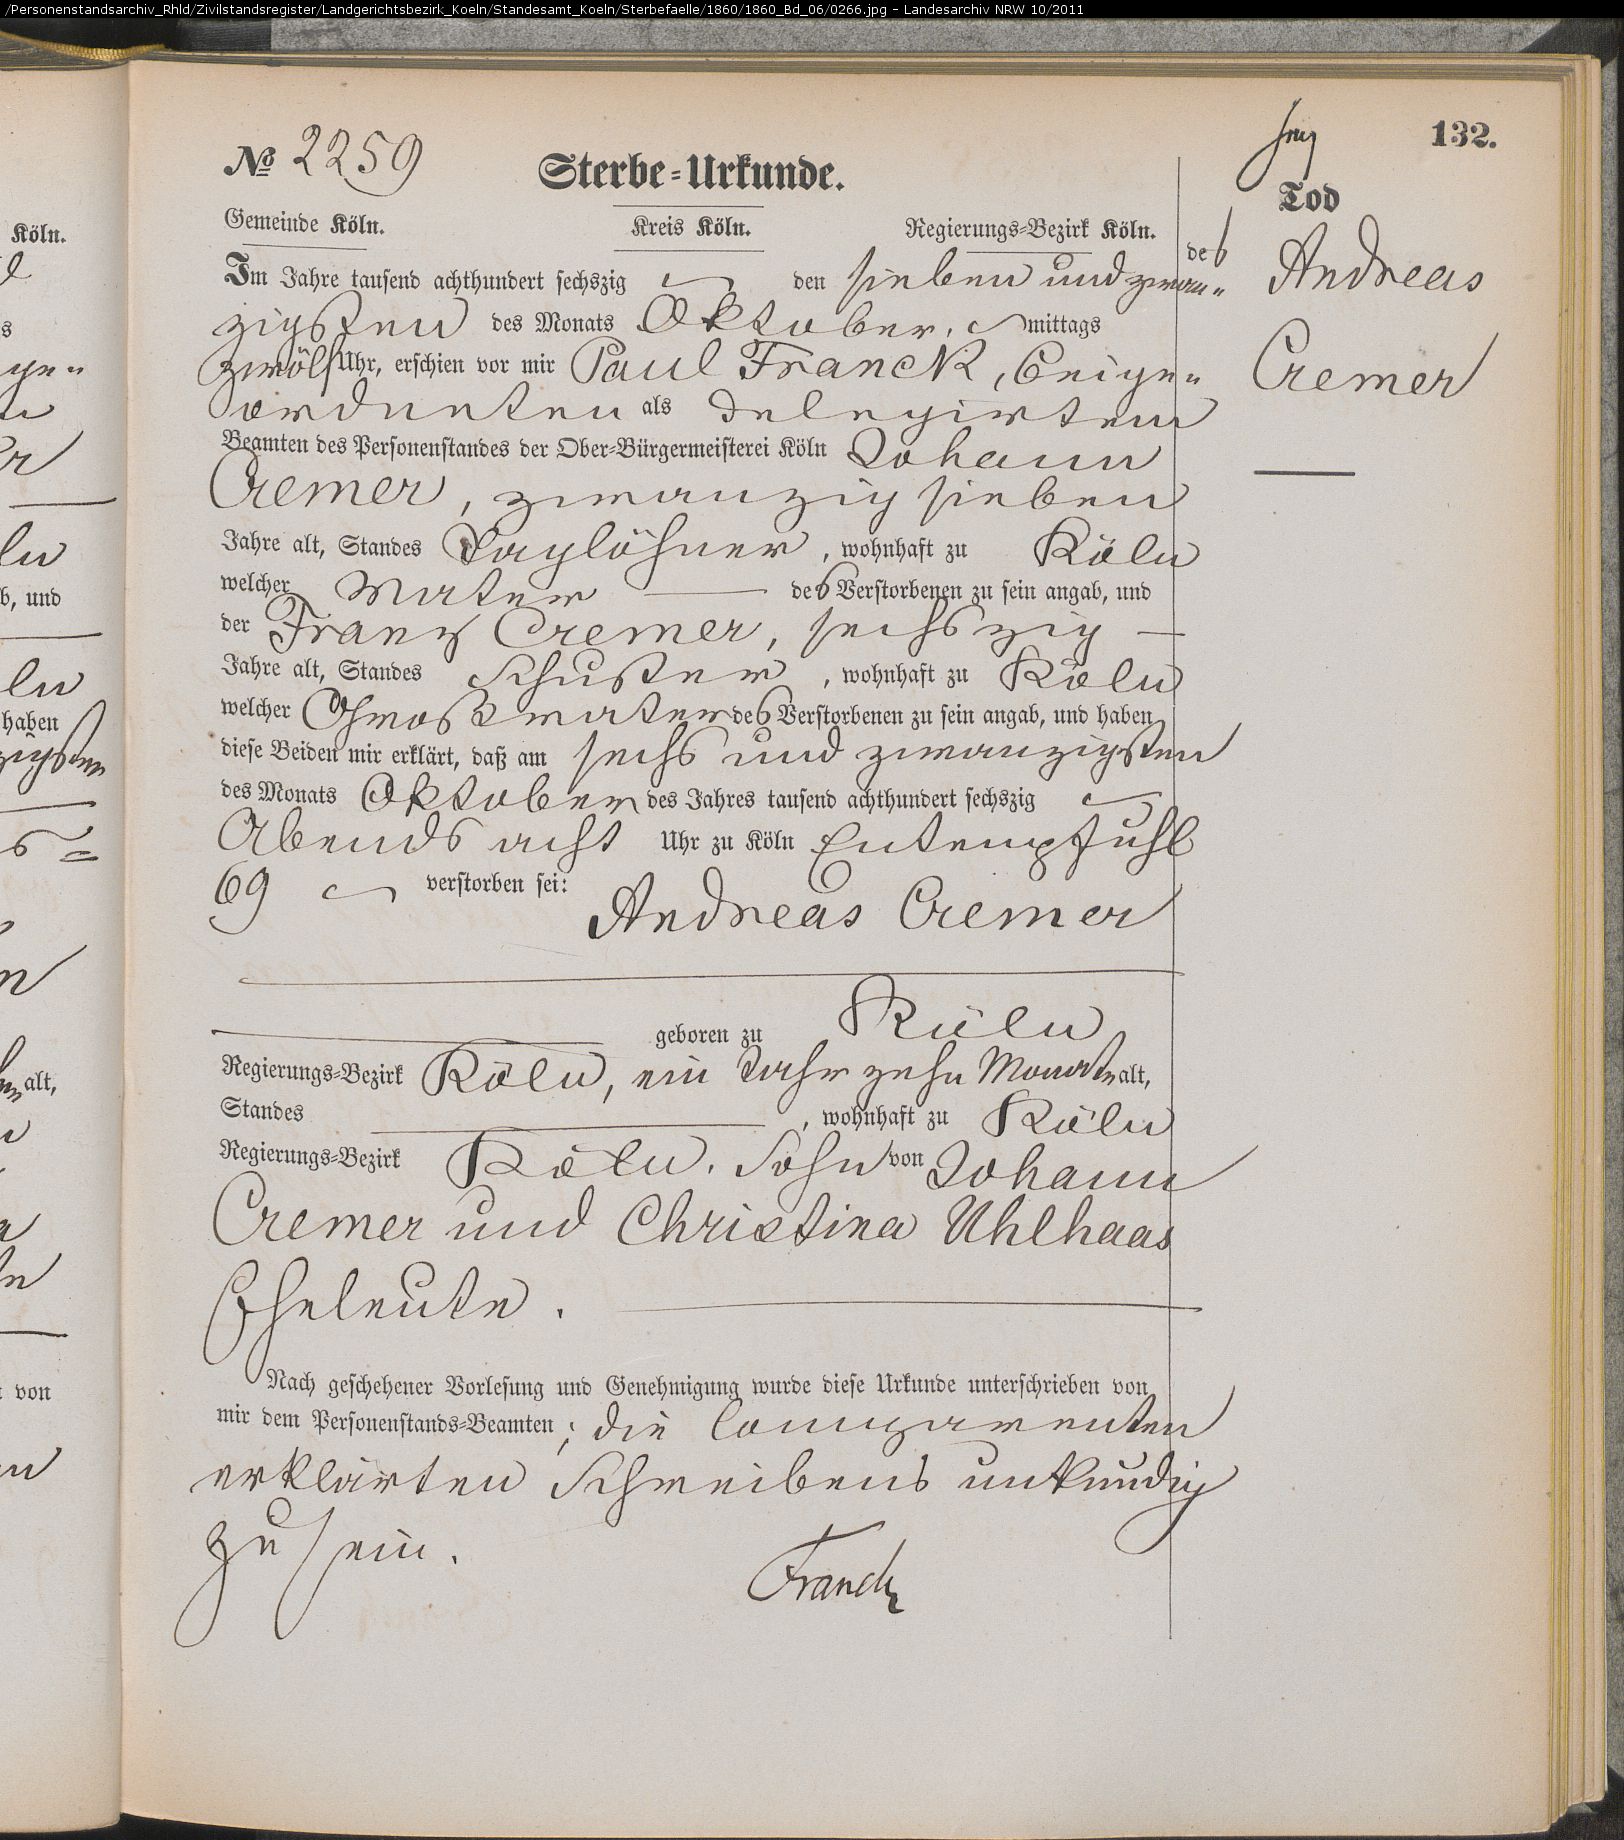 /Personenstandsarchiv_Rhld/Zivilstandsregister/Landgerichtsbezirk_Koeln/Standesamt_Koeln/Sterbefaelle/1860/1860_Bd_06/0266.jpg - Landesarchiv NRW 10/2011
132.
No 2259
Sterbe-Urkunde.
Gemeinde Köln. Kreis Köln. Regierungs-Bezirk Köln.
Tod
des Andreas
Cremer
Im Jahre tausend achthundert sechszig den sieben und zwan-
zigsten des Monats Oktober, mittags
zwölf Uhr, erschien vor mir Paul Franck, Beige-
ordneten als delegirten
Beamten des Personenstandes der Ober-Bürgermeisterei Köln Johann
Cremer, zwanzig sieben
Jahre alt, Standes Taglöhner, wohnhaft zu Köln
welcher Vater des Verstorbenen zu sein angab, und
der Franz Cremer, sechszig
Jahre alt, Standes Schuster, wohnhaft zu Köln
welcher Großvater des Verstorbenen zu sein angab, und haben
diese Beiden mir erklärt, daß am sechs und zwanzigsten
des Monats Oktober des Jahres tausend achthundert sechszig
Abends acht Uhr zu Köln Entenpfuhl
69 verstorben sei:
Andreas Cremer
geboren zu Köln
Regierungs-Bezirk Köln, ein Jahr zehn Monate alt,
Standes , wohnhaft zu Köln
Regierungs-Bezirk Köln, Sohn von Johann
Cremer und Christina Uhlhaas
Eheleute.
Nach geschehener Vorlesung und Genehmigung wurde diese Urkunde unterschrieben von
mir dem Personenstands-Beamten; die Comparenten
erklärten Schreibens unkundig
zu sein.
Franck